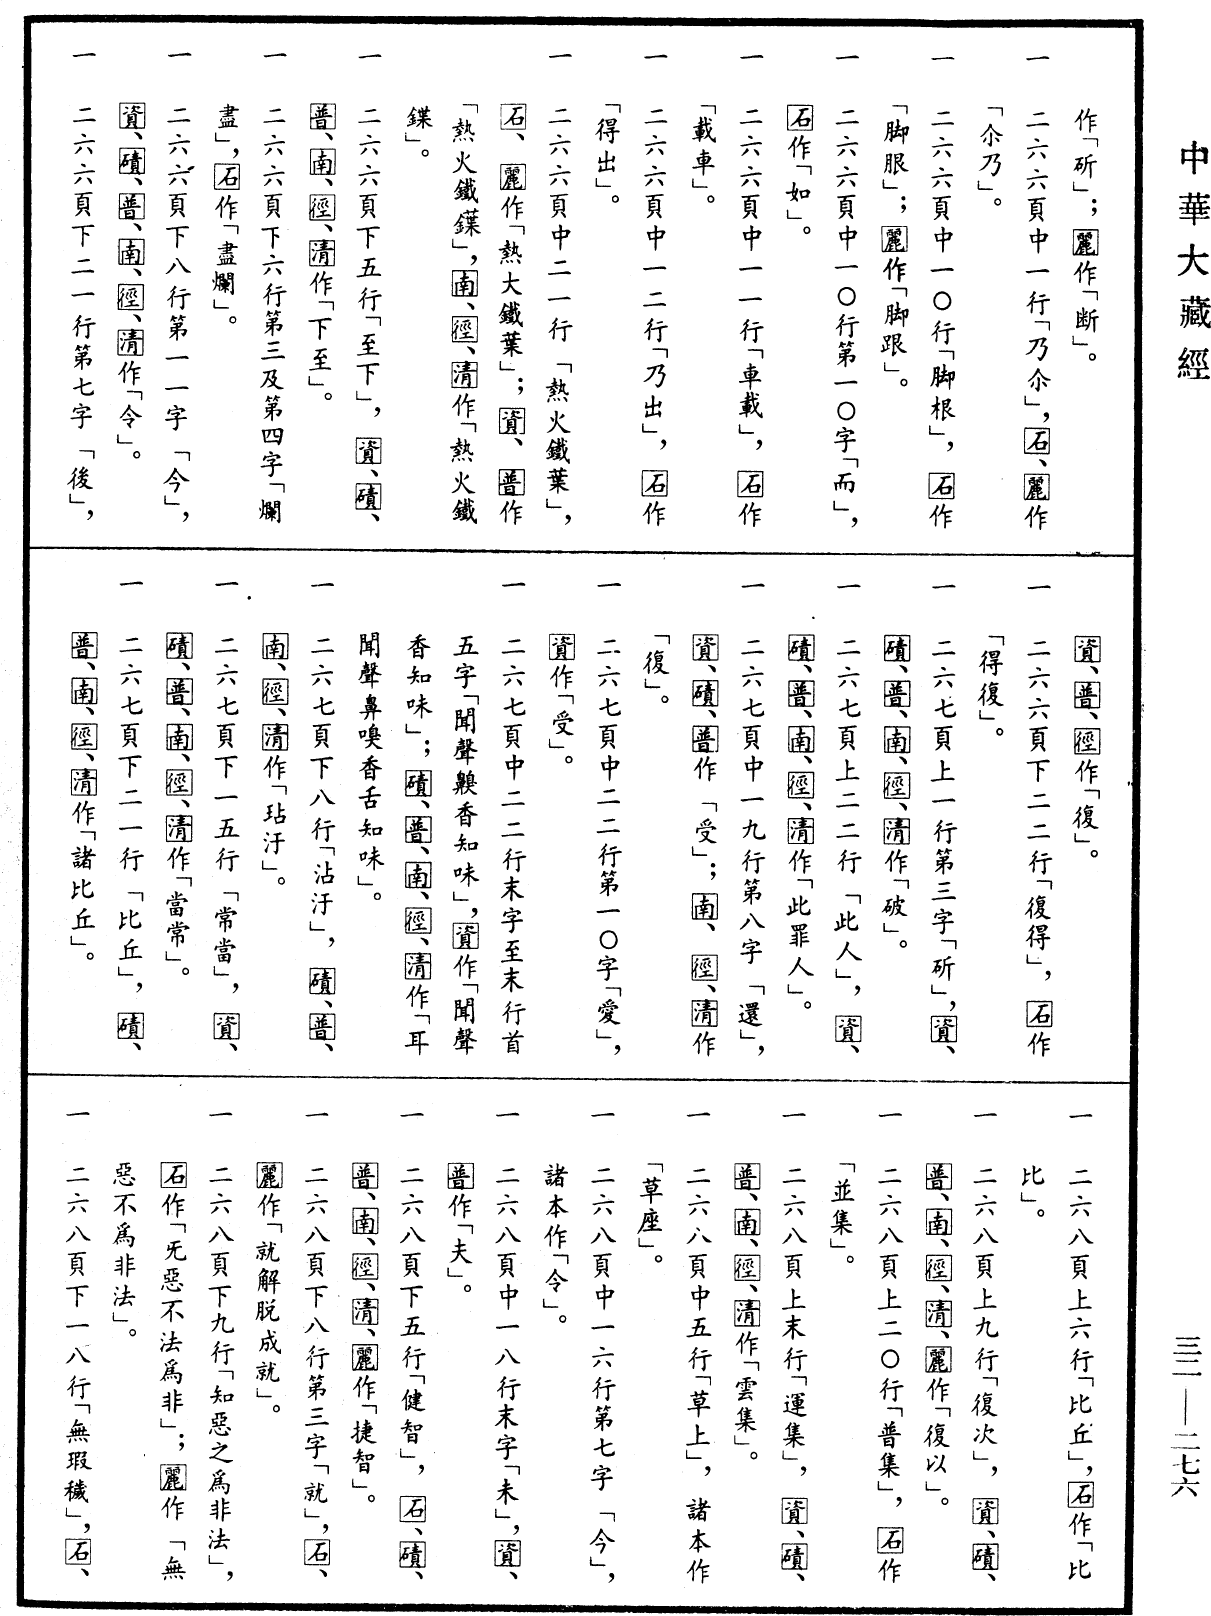 中華大藏經
作「斫」；麗作「断」。
一　二六六頁中一行「乃尒」，石、麗作
「尒乃」。
一　二六六頁中一〇行「脚根」，石作
「脚服」；麗作「脚跟」。
一　二六六頁中一〇行第一〇字「而」，
石作「如」。
一　二六六頁中一一行「車載」，石作
「載車」。
一　二六六頁中一二行「乃出」，石作
「得出」。
一　二六六頁中二一行「熱火鐵葉」，
石、麗作「熱大鐵葉」；資、普作
「熱火鐵鍱」，南、徑、清作「熱火鐵
鍱」。
一　二六六頁下五行「至下」，資、磧、
普、南、徑、清作「下至」。
一　二六六頁下六行第三及第四字「爛
盡」，石作「盡爛」。
一　二六六頁下八行第一一字「今」，
資、磧、普、南、徑、清作「令」。
一　二六六頁下二一行第七字「後」，
資、普、徑作「復」。
一　二六六頁下二二行「復得」，石作
「得復」。
一　二六七頁上一行第三字「斫」，資、
磧、普、南、徑、清作「破」。
一　二六七頁上二二行「此人」，資、
磧、普、南、徑、清作「此罪人」。
一　二六七頁中一九行第八字「還」，
資、磧、普作「受」；南、徑、清作
「復」。
一　二六七頁中二二行第一〇字「愛」，
資作「受」。
一　二六七頁中二二行末字至末行首
五字「聞聲齅香知味」，資作「聞聲
香知味」；磧、普、南、徑、清作「耳
聞聲鼻嗅香舌知味」。
一　二六七頁下八行「沾汙」，磧、普、
南、徑、清作「玷汙」。
一　二六七頁下一五行「常當」，資、
磧、普、南、徑、清作「當常」。
一　二六七頁下二一行「比丘」，磧、
普、南、徑、清作「諸比丘」。
一　二六八頁上六行「比丘」，石作「比
比」。
一　二六八頁上九行「復次」，資、磧、
普、南、徑、清、麗作「復以」。
一　二六八頁上二〇行「普集」，石作
「並集」。
一　二六八頁上末行「運集」，資、磧、
普、南、徑、清作「雲集」。
一　二六八頁中五行「草上」，諸本作
「草座」。
一　二六八頁中一六行第七字「今」，
諸本作「令」。
一　二六八頁中一八行末字「未」，資、
普作「夫」。
一　二六八頁下五行「健智」，石、磧、
普、南、徑、清、麗作「捷智」。
一　二六八頁下八行第三字「就」，石、
麗作「就解脱成就」。
一　二六八頁下九行「知惡之爲非法」，
石作「旡惡不法爲非」；麗作「無
惡不爲非法」。
一　二六八頁下一八行「無瑕穢」，石、
三二——二七六